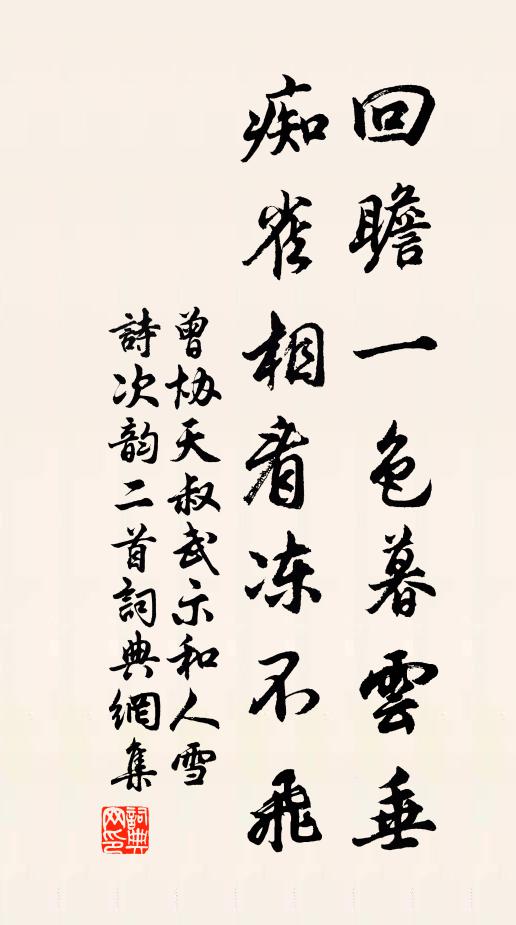 回瞻一色暮雲垂
痴雀相看冻不飛
曾协天叔武示和人雪
詩次韵二首詞典網集
詞典网印